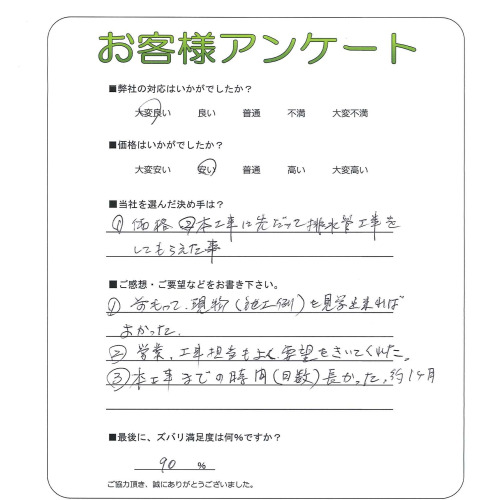 お客様アンケート
■弊社の対応はいかがでしたか?
大変良い 良い 普通 不満 大変不満
■価格はいかがでしたか?
大変安い 安い 普通 高い 大変高い
■当社を選んだ決め手は?
① 価格 ②本工事に先だって排水管工事を
してもらえた事
■ご感想・ご要望などをお書き下さい。
① 前もって、現物(施工例)を見学出来れば
よかった。
② 営業、工事担当もよく要望をきいてくれた。
③ 本工事までの時間(日数)長かった。約1ヶ月
■最後に、ズバリ満足度は何%ですか?
90 %
ご協力頂き、誠にありがとうございました。